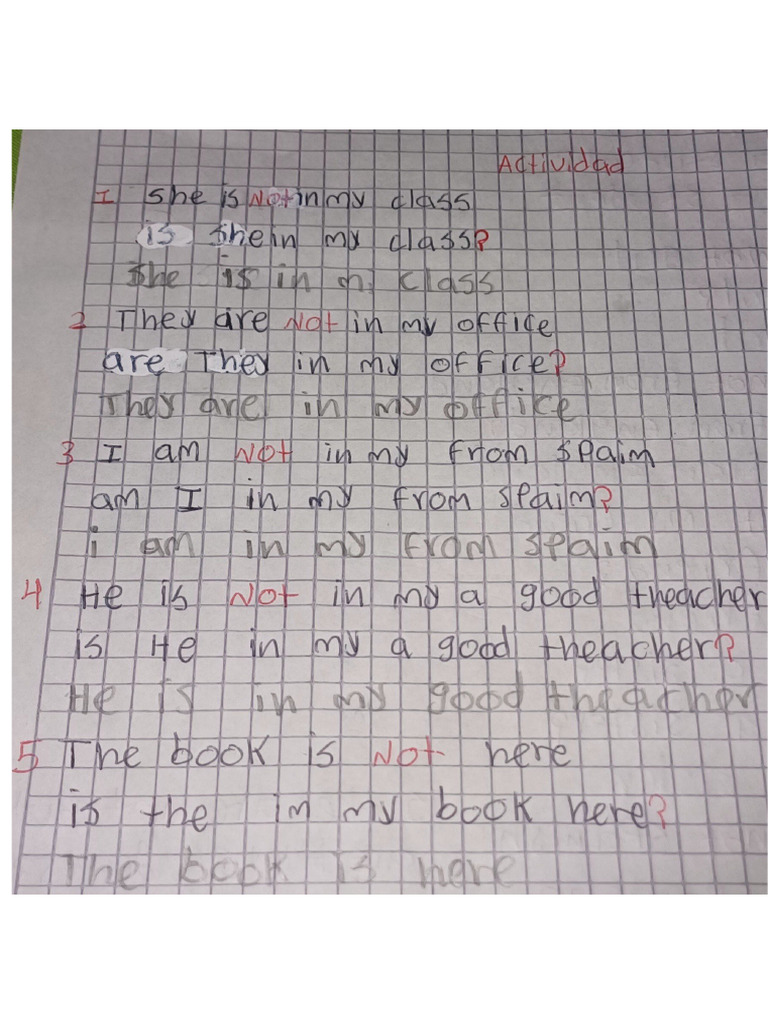 Actividad
1 She is Not in my class
is She in my class?
She is in m class
2 They are Not in my office
are They in my office?
They are in my office
3 I am Not in my from spaim
am I in my from spaim?
i am in my from spaim
4 He is Not in my a good theacher
is He in my a good theacher?
He is in my good theacher
5 The book is Not here
is the in my book here?
The book is here